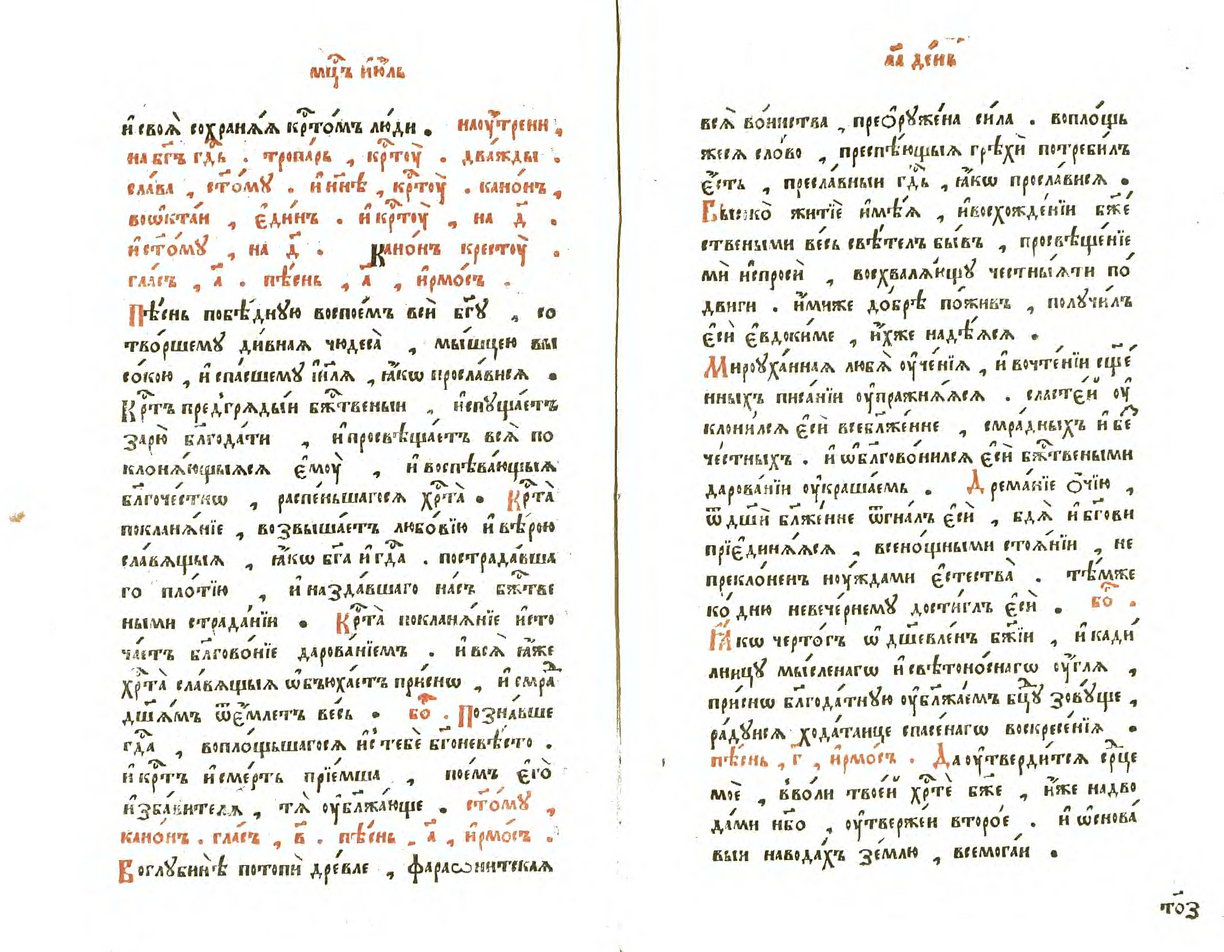 мцⷭ҇ъ і҆ю́ль
и҆ своѧ̀ сохранѧ́ѧ крⷭ҇то́мъ лю́ди . наоу҆́трени ,
на бг҃ъ гдⷭ҇ь . тропа́рь , крⷭ҇тоу̀ . два́жды .
сла́ва , ст҃о́мꙋ . и҆ нн҃ѣ , крⷭ҇тоу̀ . кано́нъ ,
воѡ҆кта́и , є҆ди́нъ . и҆ крⷭ҇тоу̀ , на д҃ .
и҆ ст҃о́мꙋ , на д҃ . Кано́нъ крестоу̀ .
гла́съ , а҃ . пѣ́снь , а҃ , і҆рмо́съ .
Пѣ́снь побѣ́днꙋю воспое́мъ всѝ бг҃ꙋ , со
тво́ршемꙋ ди́внаѧ чюдеса̀ , мы́шцею вы
со́кою , и҆ спа́сшемꙋ і҆и҃лѧ , ꙗ҆́кѡ просла́висѧ .
Крⷭ҇тъ предгрѧды́и бж҃твеныи , и҆спꙋща́етъ
зарю̀ бл҃года́ти , и҆ просвѣща́етъ всѧ̀ по
клонѧ́ющыѧсѧ є҆моу̀ , и҆ воспѣва́ющыѧ
бл҃гоче́стнѡ , распе́ньшагосѧ хрⷭ҇та̀ . Крⷭ҇та̀
покланѧ́нїе , возвыша́етъ любо́вїю и҆ вѣ́рою
сла́вѧщыѧ , ꙗ҆́кѡ бг҃а и҆ гдⷭ҇а . пострада́вша
го пло́тїю , и҆ назда́вшаго на́съ бж҃тве
ными страда́нїи . Крⷭ҇та̀ покланѧ́нїе и҆сто
ча́етъ бл҃гово́нїе дарова́нїемъ . и҆ всѧ̀ ꙗ҆́же
хрⷭ҇та̀ сла́вѧщыѧ ѡ҆бъюха́етъ при́снѡ , и҆ смра́
дш҃ѧ́мъ ѿе́млетъ весь . бо̑ . Позна́вше
гдⷭ҇а , вопло́щьшагосѧ и҆с тебѐ бг҃оневѣ́сто .
и҆ крⷭ҇тъ и҆ сме́рть прїе́мша , пое́мъ є҆го̀
и҆зба́вителѧ , тѧ̀ оу҆блжа́юще . ст҃о́мꙋ ,
кано́нъ . гла́съ , в҃ . пѣ́снь , а҃ , і҆рмо́съ .
Воглꙋбинѣ̀ потопѝ дре́вле , фараѡни́тскаѧ
л҃а де́нь
всѧ̀ во́инства , преѻрꙋже́на си́ла . вопло́щь
жесѧ сло́во , преспѣ́ющыѧ грѣхѝ потреби́лъ
є҆́сть , пресла́вныи гдⷭ҇ь , ꙗ҆́кѡ просла́висѧ .
Высоко̀ житїѐ и҆мѣ́ѧ , и҆восхожде́нїи бж҃е́
ствеными весь свѣ́телъ бы́въ , просвѣще́нїе
мѝ и҆спросѝ , восхвалѧ́ющꙋ честны́ѧти по́
двиги . и҆́миже до́брѣ по́живъ , полꙋчи́лъ
є҆сѝ є҆vдоки́ме , и҆́хже надѣ́ѧсѧ .
Мироꙋха́ннаѧ любѧ̀ оу҆че́нїѧ , и҆ вочте́нїи сщ҃е́
нныхъ писа́нїи оу҆пражнѧ́ѧсѧ . сласте́и оу҆
клони́лсѧ є҆сѝ всебл҃же́нне , смра́дныхъ и҆ бе
че́стныхъ . и҆ ѡ҆бл҃гово́нилсѧ є҆сѝ бж҃твеными
дарова́нїи оу҆краша́емь . Дрема́нїе ѻ҆́чїю ,
ѿ дш҃ѝ бл҃же́нне ѿгна́лъ є҆сѝ , бдѧ̀ и҆ бг҃ови
прїединѧ́ѧсѧ , всено́щными стоѧ́нїи , не
прекло́ненъ ноу́ждами є҆стества̀ . тѣ́мже
ко дню̀ невече́рнемꙋ дости́глъ є҆сѝ . бо̑ .
Ꙗ҆́кѡ черто́гъ ѡ҆дш҃евле́нъ бж҃їи , и҆ кади́
лницꙋ мы́сленагѡ и҆ свѣтоно́снагѡ оу҆́глѧ ,
при́снѡ бл҃года́тнꙋю оу҆бл҃жа́емъ бцⷣꙋ зовꙋ́ще ,
ра́дꙋисѧ хода́таице спасе́нагѡ воскресе́нїѧ .
пѣ́снь , г҃ , і҆рмо́съ . Да оу҆тверди́тсѧ ср҃це
моѐ , вво́ли твое́и хрⷭ҇тѐ бж҃е , и҆́же надво
да́ми нб҃о , оу҆твержѐи второ́е . и҆ ѡ҆снова
выи наво́дахъ зе́млю , всемога́и .
то҃з